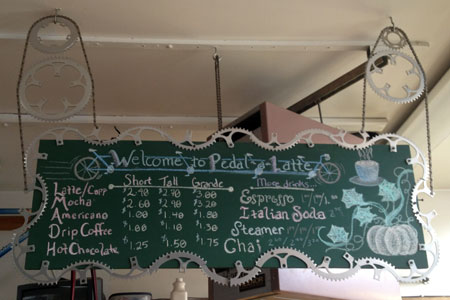 Welcome to Pedal-a-Latte
Short Tall Grande
More drinks...
Latte/Capp $2.40 $2.90 $3.20
Mocha $2.60 $2.90 $3.20
Americano $1.00 $1.40
Drip Coffee $1.00
Hot Chocolate $1.25 $1.50 $1.75
Espresso
Italian Soda
Steamer
Chai